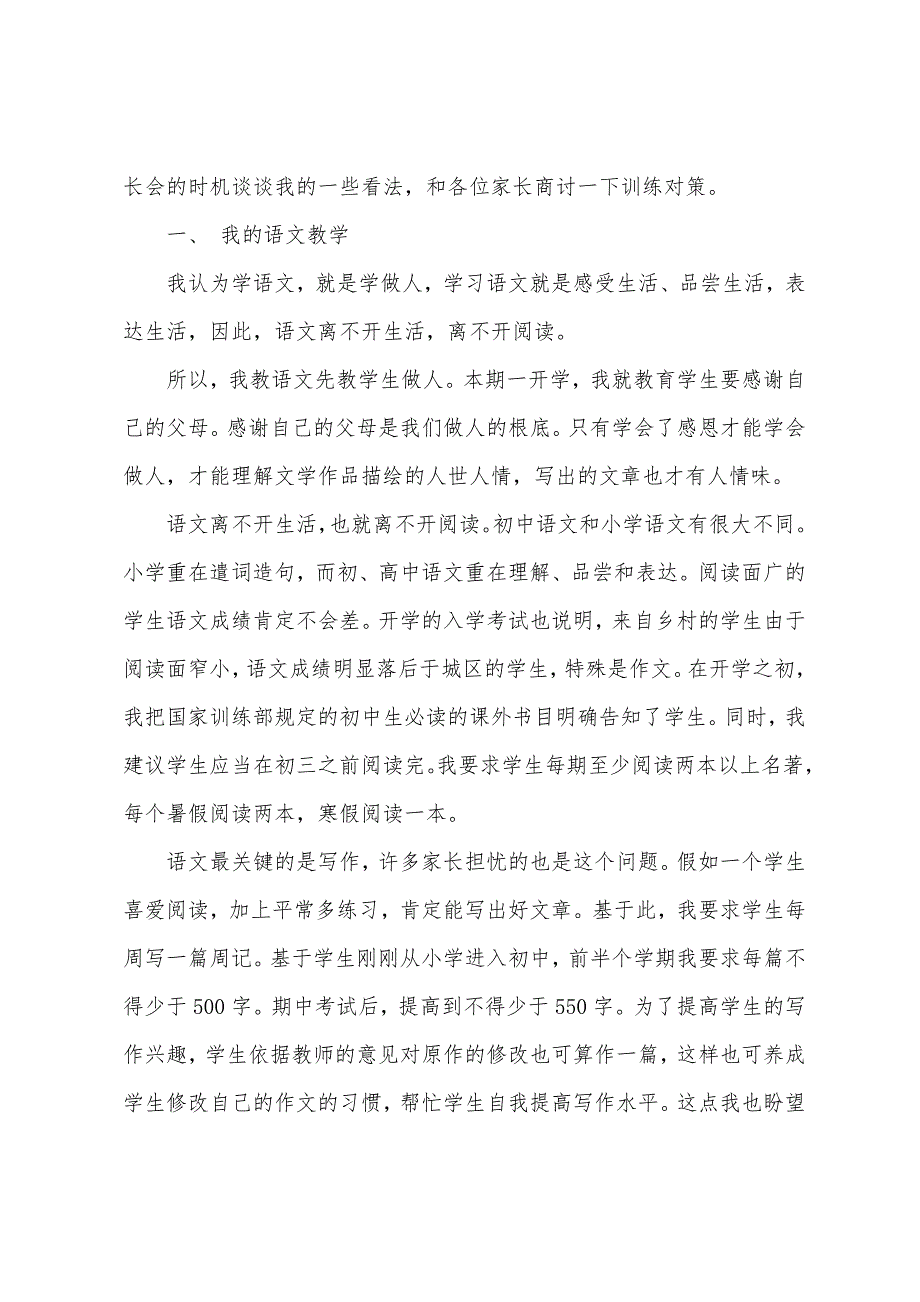 长会的时机谈谈我的一些看法，和各位家长商讨一下训练对策。
一、 我的语文教学
我认为学语文，就是学做人，学习语文就是感受生活、品尝生活，表
达生活，因此，语文离不开生活，离不开阅读。
所以，我教语文先教学生做人。本期一开学，我就教育学生要感谢自
己的父母。感谢自己的父母是我们做人的根底。只有学会了感恩才能学会
做人，才能理解文学作品描绘的人世人情，写出的文章也才有人情味。
语文离不开生活，也就离不开阅读。初中语文和小学语文有很大不同。
小学重在遣词造句，而初、高中语文重在理解、品尝和表达。阅读面广的
学生语文成绩肯定不会差。开学的入学考试也说明，来自乡村的学生由于
阅读面窄小，语文成绩明显落后于城区的学生，特殊是作文。在开学之初，
我把国家训练部规定的初中生必读的课外书目明确告知了学生。同时，我
建议学生应当在初三之前阅读完。我要求学生每期至少阅读两本以上名著，
每个暑假阅读两本，寒假阅读一本。
语文最关键的是写作，许多家长担忧的也是这个问题。假如一个学生
喜爱阅读，加上平常多练习，肯定能写出好文章。基于此，我要求学生每
周写一篇周记。基于学生刚刚从小学进入初中，前半个学期我要求每篇不
得少于 500 字。期中考试后，提高到不得少于 550 字。为了提高学生的写
作兴趣，学生依据教师的意见对原作的修改也可算作一篇，这样也可养成
学生修改自己的作文的习惯，帮忙学生自我提高写作水平。这点我也盼望